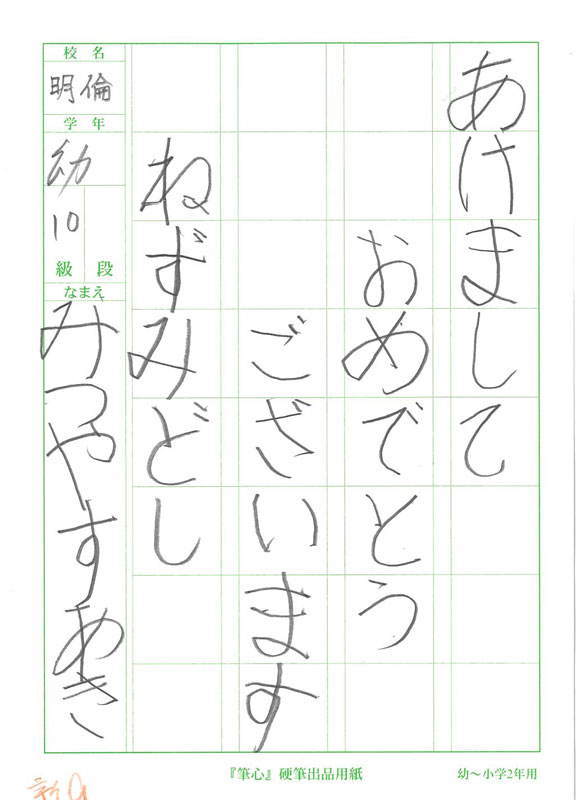 あけまして
おめでとう
ございます
ねずみどし
校名
明倫
学年
幼
10
級 段
なまえ
みつやすあき
『筆心』硬筆出品用紙
幼～小学2年用